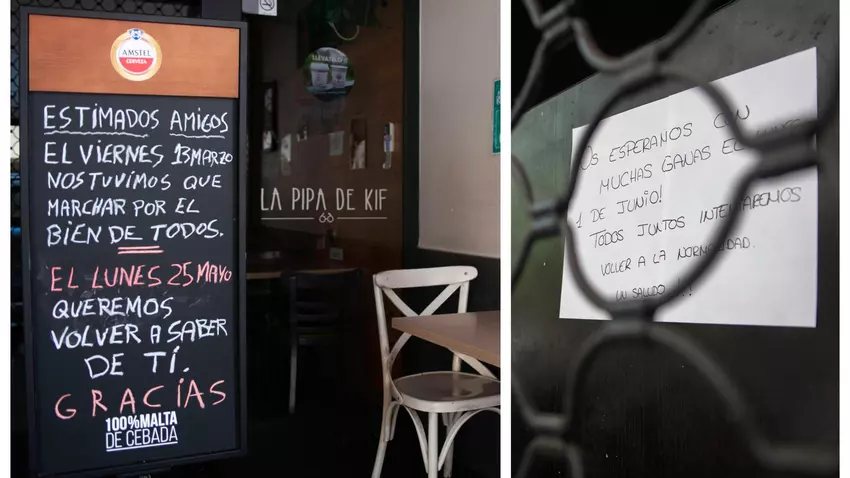 AMSTEL
CERVEZA
ESTIMADOS AMIGOS
EL VIERNES 13 MARZO
NOS TUVIMOS QUE
MARCHAR POR EL
BIEN DE TODOS.
EL LUNES 25 MAYO
QUEREMOS
VOLVER A SABER
DE TÍ.
GRACIAS
100% MALTA
DE CEBADA
LA PIPA DE KIF
OS ESPERAMOS CON
MUCHAS GANAS EL
1 DE JUNIO!
TODOS JUNTOS INTENTAREMOS
VOLVER A LA NORMALIDAD.
UN SALUDO